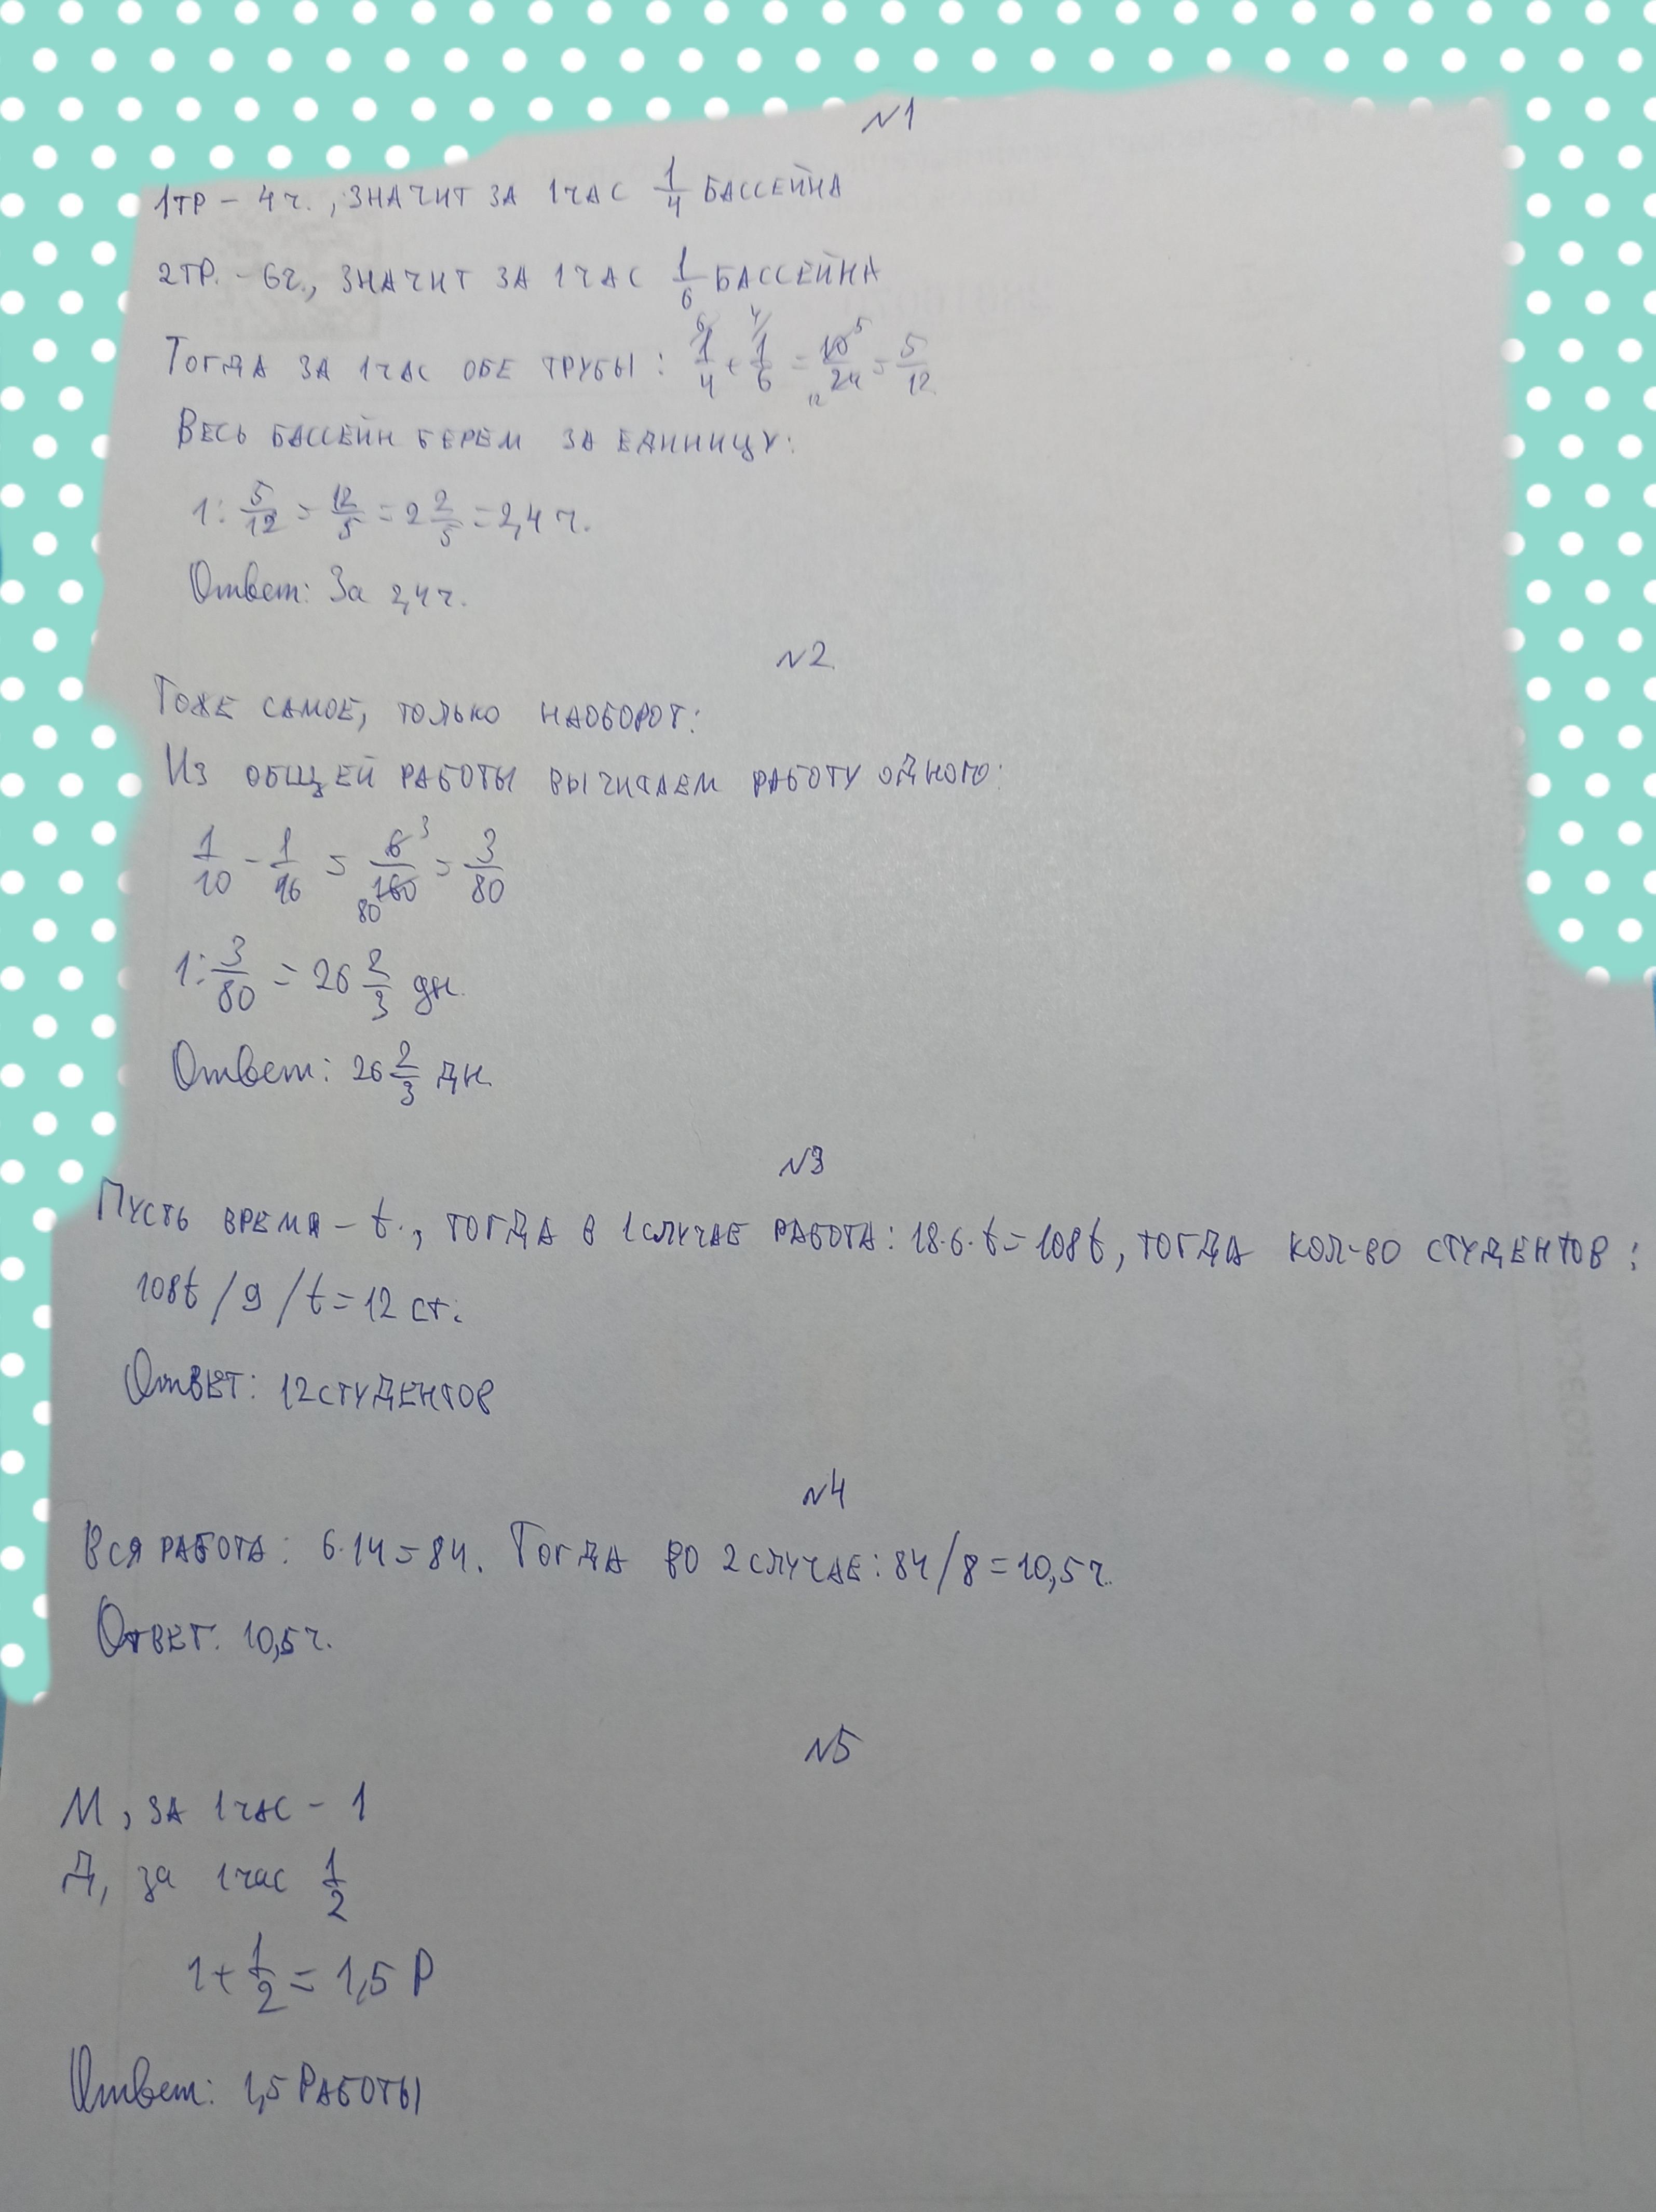 №1
1ТР – 4ч., ЗНАЧИТ ЗА 1 ЧАС 1/4 БАССЕЙНА
2ТР. – 6ч., ЗНАЧИТ ЗА 1 ЧАС 1/6 БАССЕЙНА
ТОГДА ЗА 1 ЧАС ОБЕ ТРУБЫ: 6/ 1/4 + 4/ 1/6 = 10/24 5 12 = 5/12
ВЕСЬ БАССЕЙН БЕРЕМ ЗА ЕДИНИЦУ:
1 : 5/12 = 12/5 = 2 2/5 = 2,4 ч.
Ответ: За 2,4 ч.
№2
ТОЖЕ САМОЕ, ТОЛЬКО НАОБОРОТ:
ИЗ ОБЩЕЙ РАБОТЫ ВЫЧИТАЕМ РАБОТУ ОДНОГО:
1/10 - 1/16 = 6/160 3 80 = 3/80
1 : 3/80 = 26 2/3 дн.
Ответ: 26 2/3 ДН.
№3
ПУСТЬ ВРЕМЯ – t., ТОГДА В 1 СЛУЧАЕ РАБОТА: 18·6·t = 108t, ТОГДА КОЛ-ВО СТУДЕНТОВ:
108t / 9 / t = 12 СТ.
ОТВЕТ: 12 СТУДЕНТОВ
№4
ВСЯ РАБОТА: 6·14 = 84. ТОГДА ВО 2 СЛУЧАЕ: 84/8 = 10,5 ч.
ОТВЕТ: 10,5 ч.
№5
М, ЗА 1 ЧАС – 1
Д, за 1 час 1/2
1 + 1/2 = 1,5 Р
Ответ: 1,5 РАБОТЫ